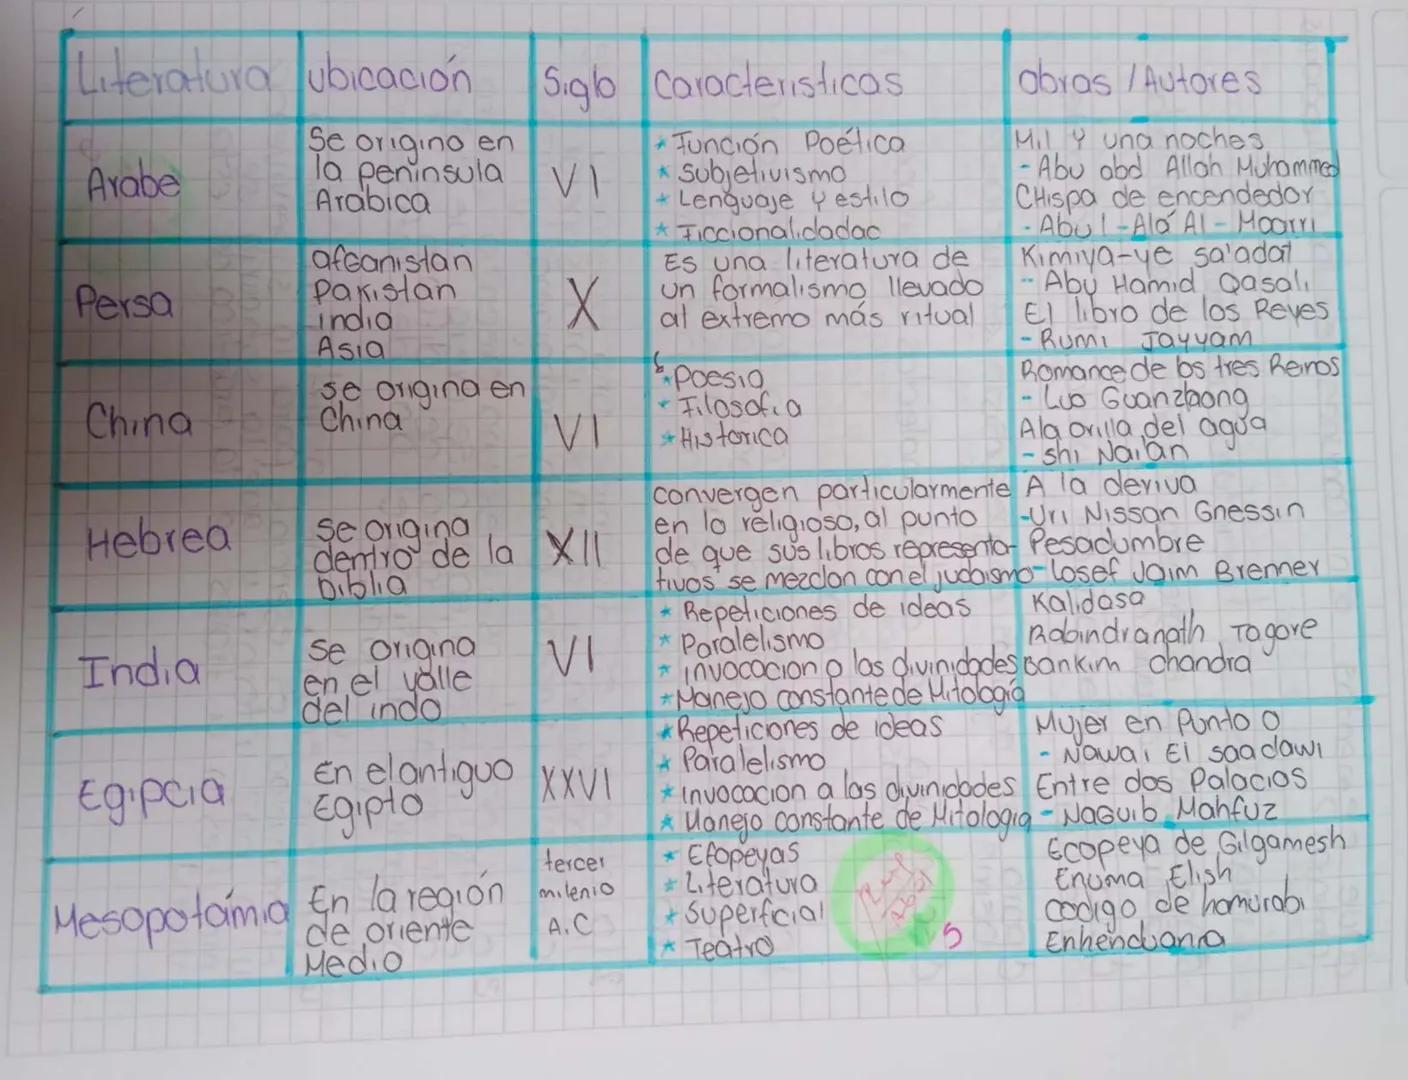 Literatura
ubicación
Siglo
Caracteristicas
obras / Autores
Arabe
Se origino en
la peninsula
Arabica
VI
* Función Poética
* Subjetivismo
* Lenguaje y estilo
* Ficcionalidadac
Mil y una noches
- Abu abd Allah Muhammed
CHispa de encendedor
- Abu l-Alá Al-Maarri
Persa
afganistan
Pakistan
india
Asia
X
Es una literatura de
un formalismo llevado
al extremo más ritual
Kimiya-ye sa'adat
- Abu Hamid Qasali
El libro de los Reyes
- Rumi Jayyam
China
se origina en
China
VI
* Poesia
* Filosofia
* Historica
Romance de los tres Reinos
- Luo Guanzhong
Ala orilla del agua
- shi Naian
Hebrea
se origina
dentro de la
biblia
XII
convergen particularmente
en lo religioso, al punto
de que sus libros representa-
tivos se mezclan con el judaismo
A la deriva
- Uri Nissan Gnessin
Pesadumbre
- Iosef Jaim Brenner
India
se origina
en el valle
del indo
VI
* Repeticiones de ideas
* Paralelismo
* invocacion a las divinidades
* Manejo constante de Mitología
Kalidasa
Rabindranath Tagore
bankim chandra
Egipcia
En el antiguo
Egipto
XXVI
* Repeticiones de ideas
* Paralelismo
* invocacion a las divinidades
* Manejo constante de Mitologia
Mujer en Punto 0
- Nawai El saadawi
Entre dos Palacios
- Naguib Mahfuz
Mesopotámia
En la región
de oriente
Medio
tercer
milenio
A.C
* Efopeyas
* Literatura
* Superficial
* Teatro
5
Ecopeya de Gilgamesh
Enuma Elish
codigo de hamurabi
Enhenduanna